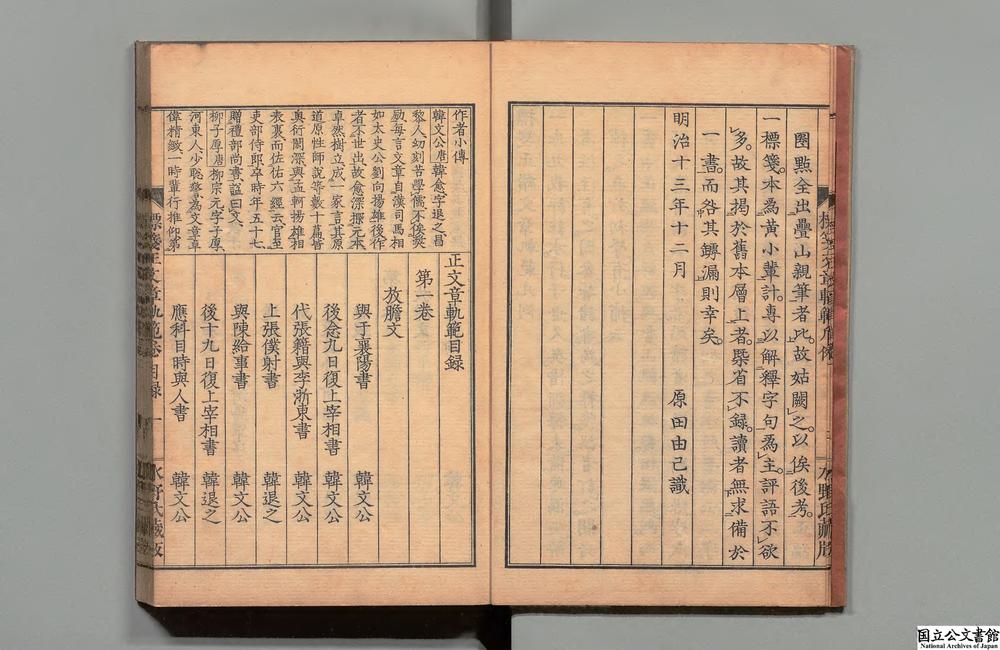 圈點全出疊山親筆者此故姑闕之以俟後考
一標箋本爲黃小輩計專以解釋字句爲主評語不欲
多故其揭於舊本層上者槩省不錄讀者無求備於
一書而咎其鏬漏則幸矣
明治十三年十二月
原田由己識
水野氏藏版
作者小傳
韓文公 唐韓愈字退之昌
黎人幼刻苦學儒不俟奬
勵每言文章自漢司馬相
如太史公劉向揚雄後作
者不世出故愈深探元本
卓然樹立成一家言其原
道原性師說等數十篇皆
奥衍閎深與孟軻揚雄相
表裏而佐佑六經云官至
吏部侍郎卒時年五十七
贈禮部尚書謚曰文
柳子厚 唐柳宗元字子厚
河東人少聰警爲文章卓
偉精緻一時輩行推仰第
正文章軌範目録
第一卷
放膽文
與于襄陽書 韓文公
後念九日復上宰相書 韓文公
代張籍與李浙東書 韓文公
上張僕射書 韓退之
與陳給事書 韓文公
後十九日復上宰相書 韓退之
應科目時與人書 韓文公
標箋正文章軌範卷一 目録 一
水野氏藏版
国立公文書館
National Archives of Japan